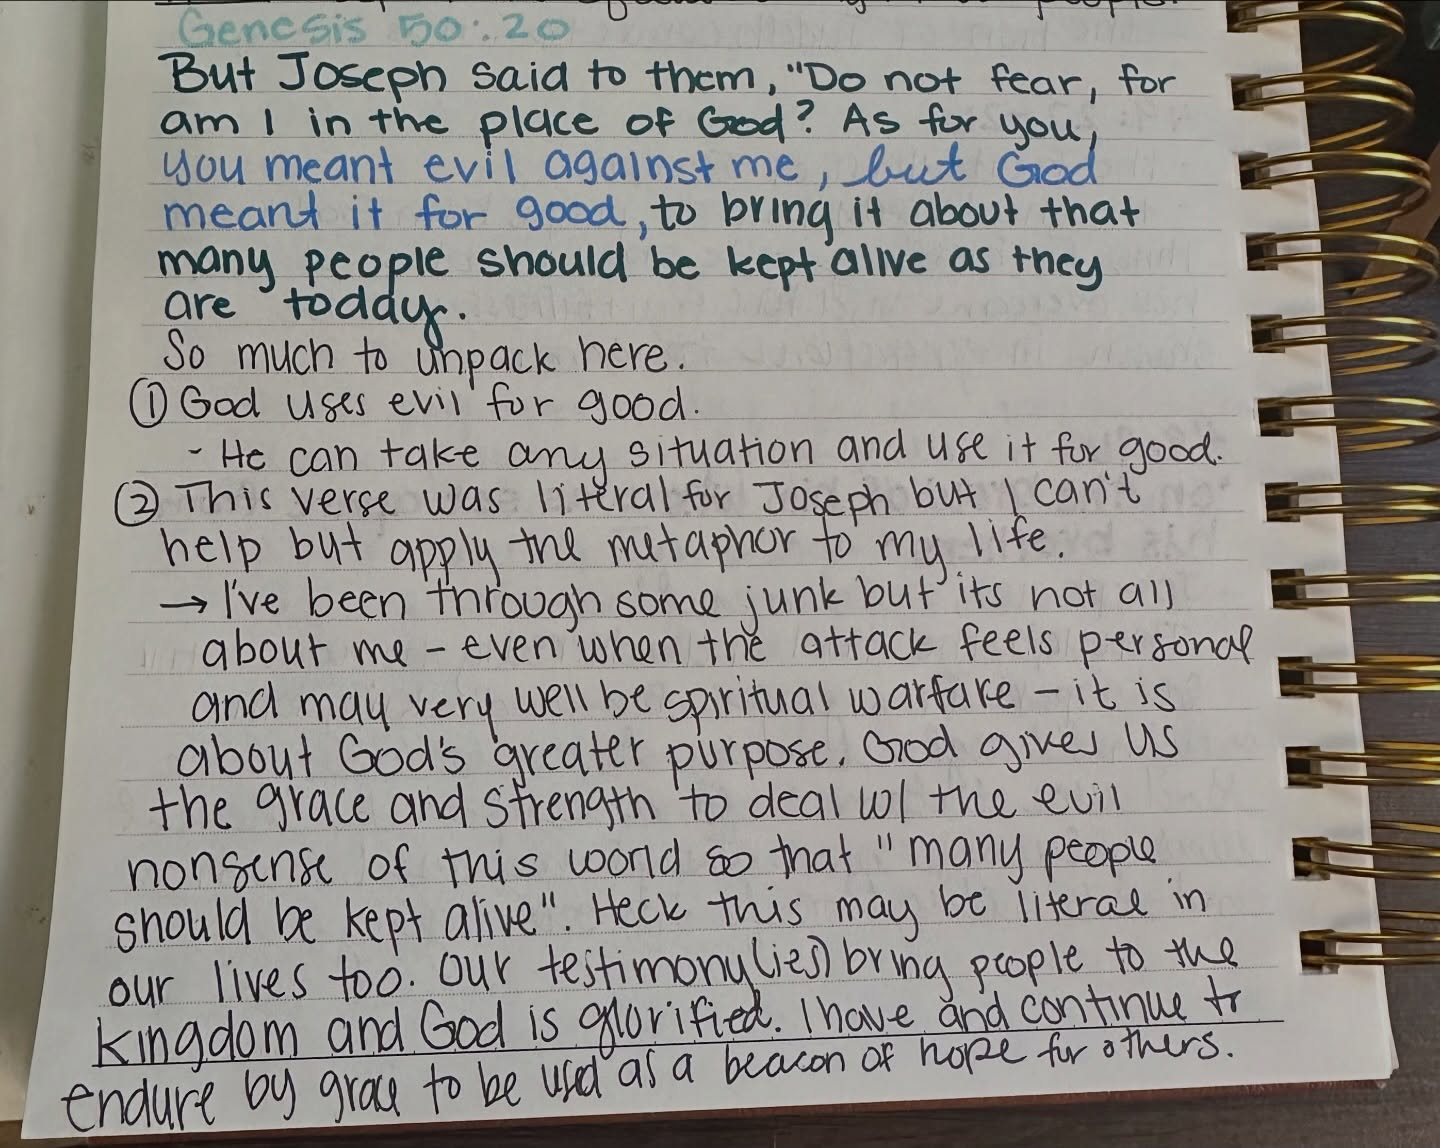 Genesis 50:20
But Joseph said to them, "Do not fear, for
am I in the place of God? As for you,
you meant evil against me, but God
meant it for good, to bring it about that
many people should be kept alive as they
are today.
So much to unpack here.
① God uses evil for good.
- He can take any situation and use it for good.
② This verse was literal for Joseph but I can't
help but apply the metaphor to my life.
→ I've been through some junk but its not all
about me - even when the attack feels personal
and may very well be spiritual warfare - it is
about God's greater purpose. God gives us
the grace and strength to deal w/ the evil
nonsense of this world so that "many people
should be kept alive". Heck this may be literal in
our lives too. Our testimony(ies) bring people to the
kingdom and God is glorified. I have and continue to
endure by grace to be used as a beacon of hope for others.